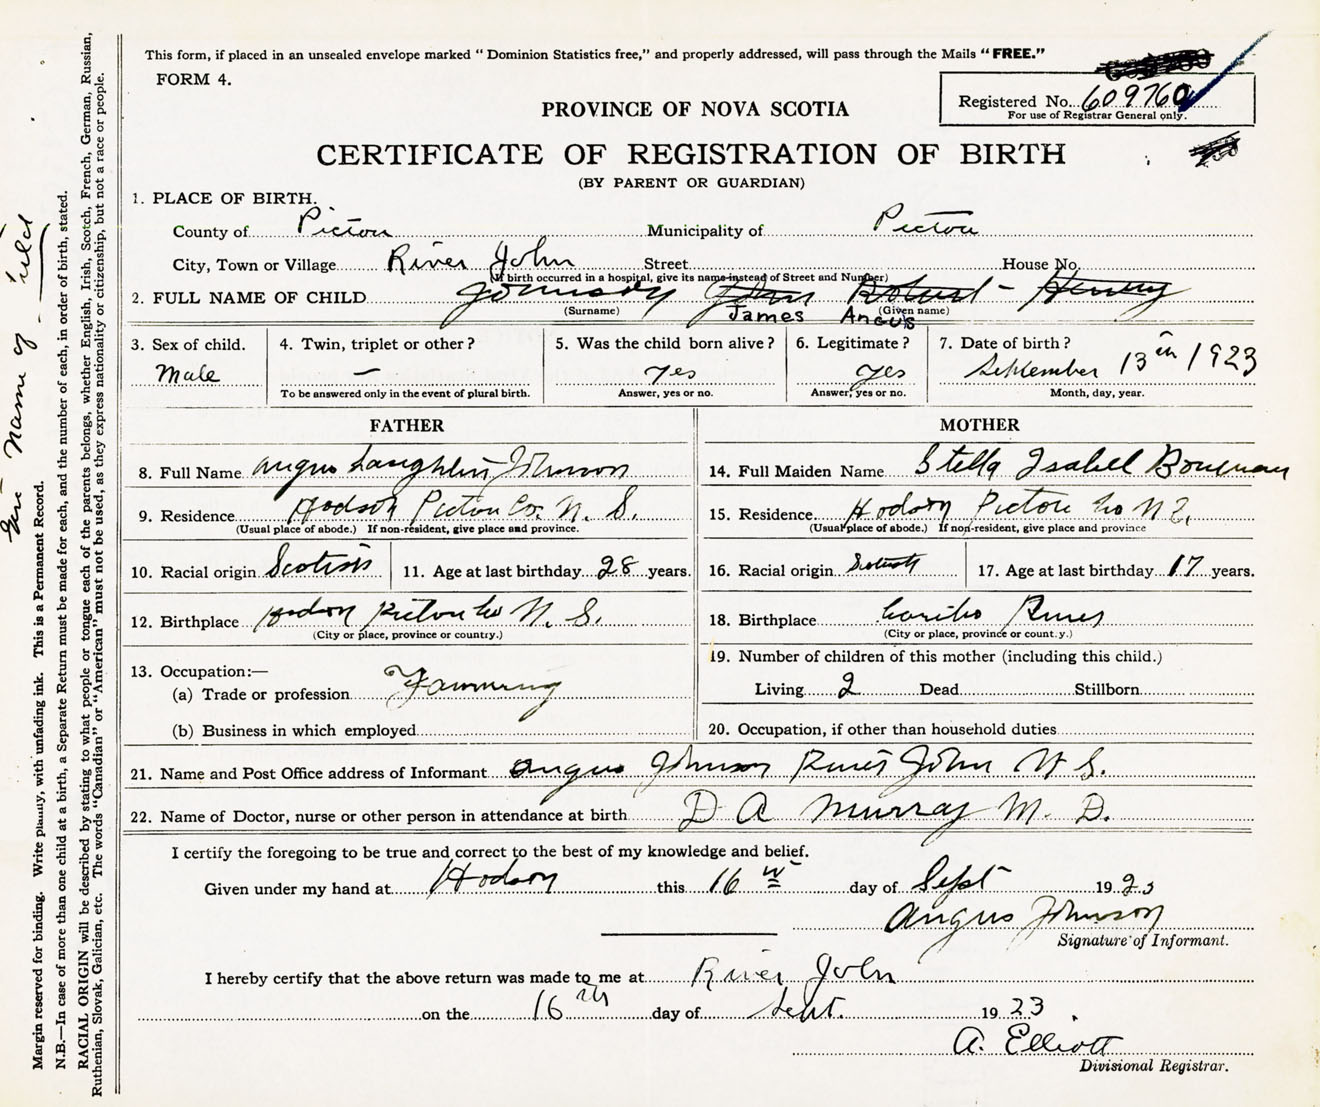 This form, if placed in an unsealed envelope marked "Dominion Statistics free," and properly addressed, will pass through the Mails "FREE."
FORM 4.
Registered No. 609760
For use of Registrar General only.
PROVINCE OF NOVA SCOTIA
CERTIFICATE OF REGISTRATION OF BIRTH
(BY PARENT OR GUARDIAN)
1. PLACE OF BIRTH.
County of Pictou Municipality of Pictou
City, Town or Village River John Street House No.
(If birth occurred in a hospital, give its name instead of Street and Number)
2. FULL NAME OF CHILD Johnson John Robert - Henry
(Surname) (Given name)
James Angus
3. Sex of child. 4. Twin, triplet or other? 5. Was the child born alive? 6. Legitimate? 7. Date of birth?
Male — Yes Yes September 13th 1923
To be answered only in the event of plural birth. Answer, yes or no. Answer, yes or no. Month, day, year.
FATHER MOTHER
8. Full Name Angus Laughlin Johnson 14. Full Maiden Name Stella Isabell Bowman
9. Residence Hodson Pictou Co. N. S. 15. Residence Hodson Pictou Co N S.
(Usual place of abode.) If non-resident, give place and province. (Usual place of abode.) If non-resident, give place and province
10. Racial origin Scotish 11. Age at last birthday 28 years. 16. Racial origin 17. Age at last birthday 17 years.
12. Birthplace Hodson Pictou Co N. S. 18. Birthplace Caribo River
(City or place, province or country.) (City or place, province or count.y.)
13. Occupation:—
19. Number of children of this mother (including this child.)
(a) Trade or profession Farming
Living 2 Dead Stillborn
(b) Business in which employed 20. Occupation, if other than household duties
21. Name and Post Office address of Informant Angus Johnson River John N S.
22. Name of Doctor, nurse or other person in attendance at birth D A Murray M. D.
I certify the foregoing to be true and correct to the best of my knowledge and belief.
Given under my hand at Hodson this 16th day of Sept 1923
Angus Johnson
Signature of Informant.
I hereby certify that the above return was made to me at River John
on the 16th day of Sept. 1923
A. Elliott
Divisional Registrar.
name of
Margin reserved for binding. Write plainly, with unfading ink. This is a Permanent Record.
N.B.—In case of more than one child at a birth, a Separate Return must be made for each, and the number of each, in order of birth, stated.
RACIAL ORIGIN will be described by stating to what people or tongue each of the parents belongs, whether English, Irish, Scotch, French, German, Russian,
Ruthenian, Slovak, Galician, etc. The words "Canadian" or "American" must not be used, as they express nationality or citizenship, but not a race or people.